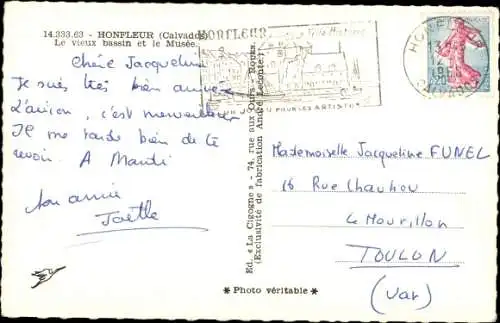 14.333.63 - HONFLEUR (Calvados)
Le vieux bassin et le Musée.
HONFLEUR
POUR LES ARTISTES
HONFLEUR
13
12
CALVADOS
Chère Jacqueline
Je suis très bien arrivée
L'avion, c'est merveilleux
Il me tarde bien de te
revoir. A Mardi
ton amie
Joëlle
Ed. « La Cigogne » - 74, rue aux Ours - Rouen
(Exclusivité de fabrication André Leconte)
Mademoiselle Jacqueline FUNEL
16 Rue
Le Mourillon
TOULON
(Var)
* Photo véritable *